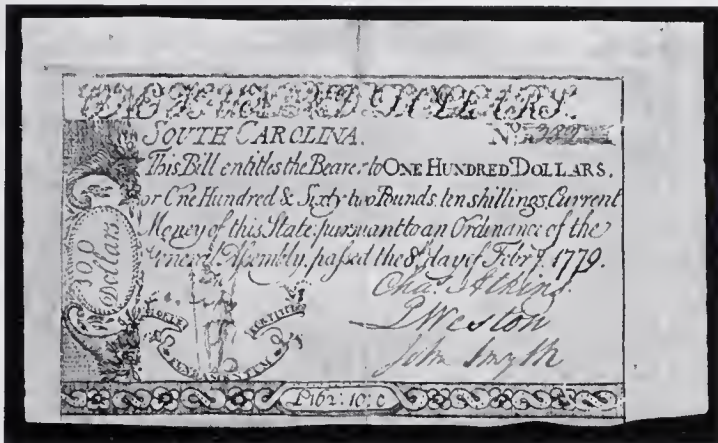 SOUTH CAROLINA. No.
This Bill entitles the Bearer to ONE HUNDRED DOLLARS,
or One Hundred & Sixty two Pounds, ten shillings, Current
Money of this State, pursuant to an Ordinance of the
General Assembly, passed the 8th day of Febry. 1779.
100
Dollars
Chas. Atkins.
PWeston
John Smyth